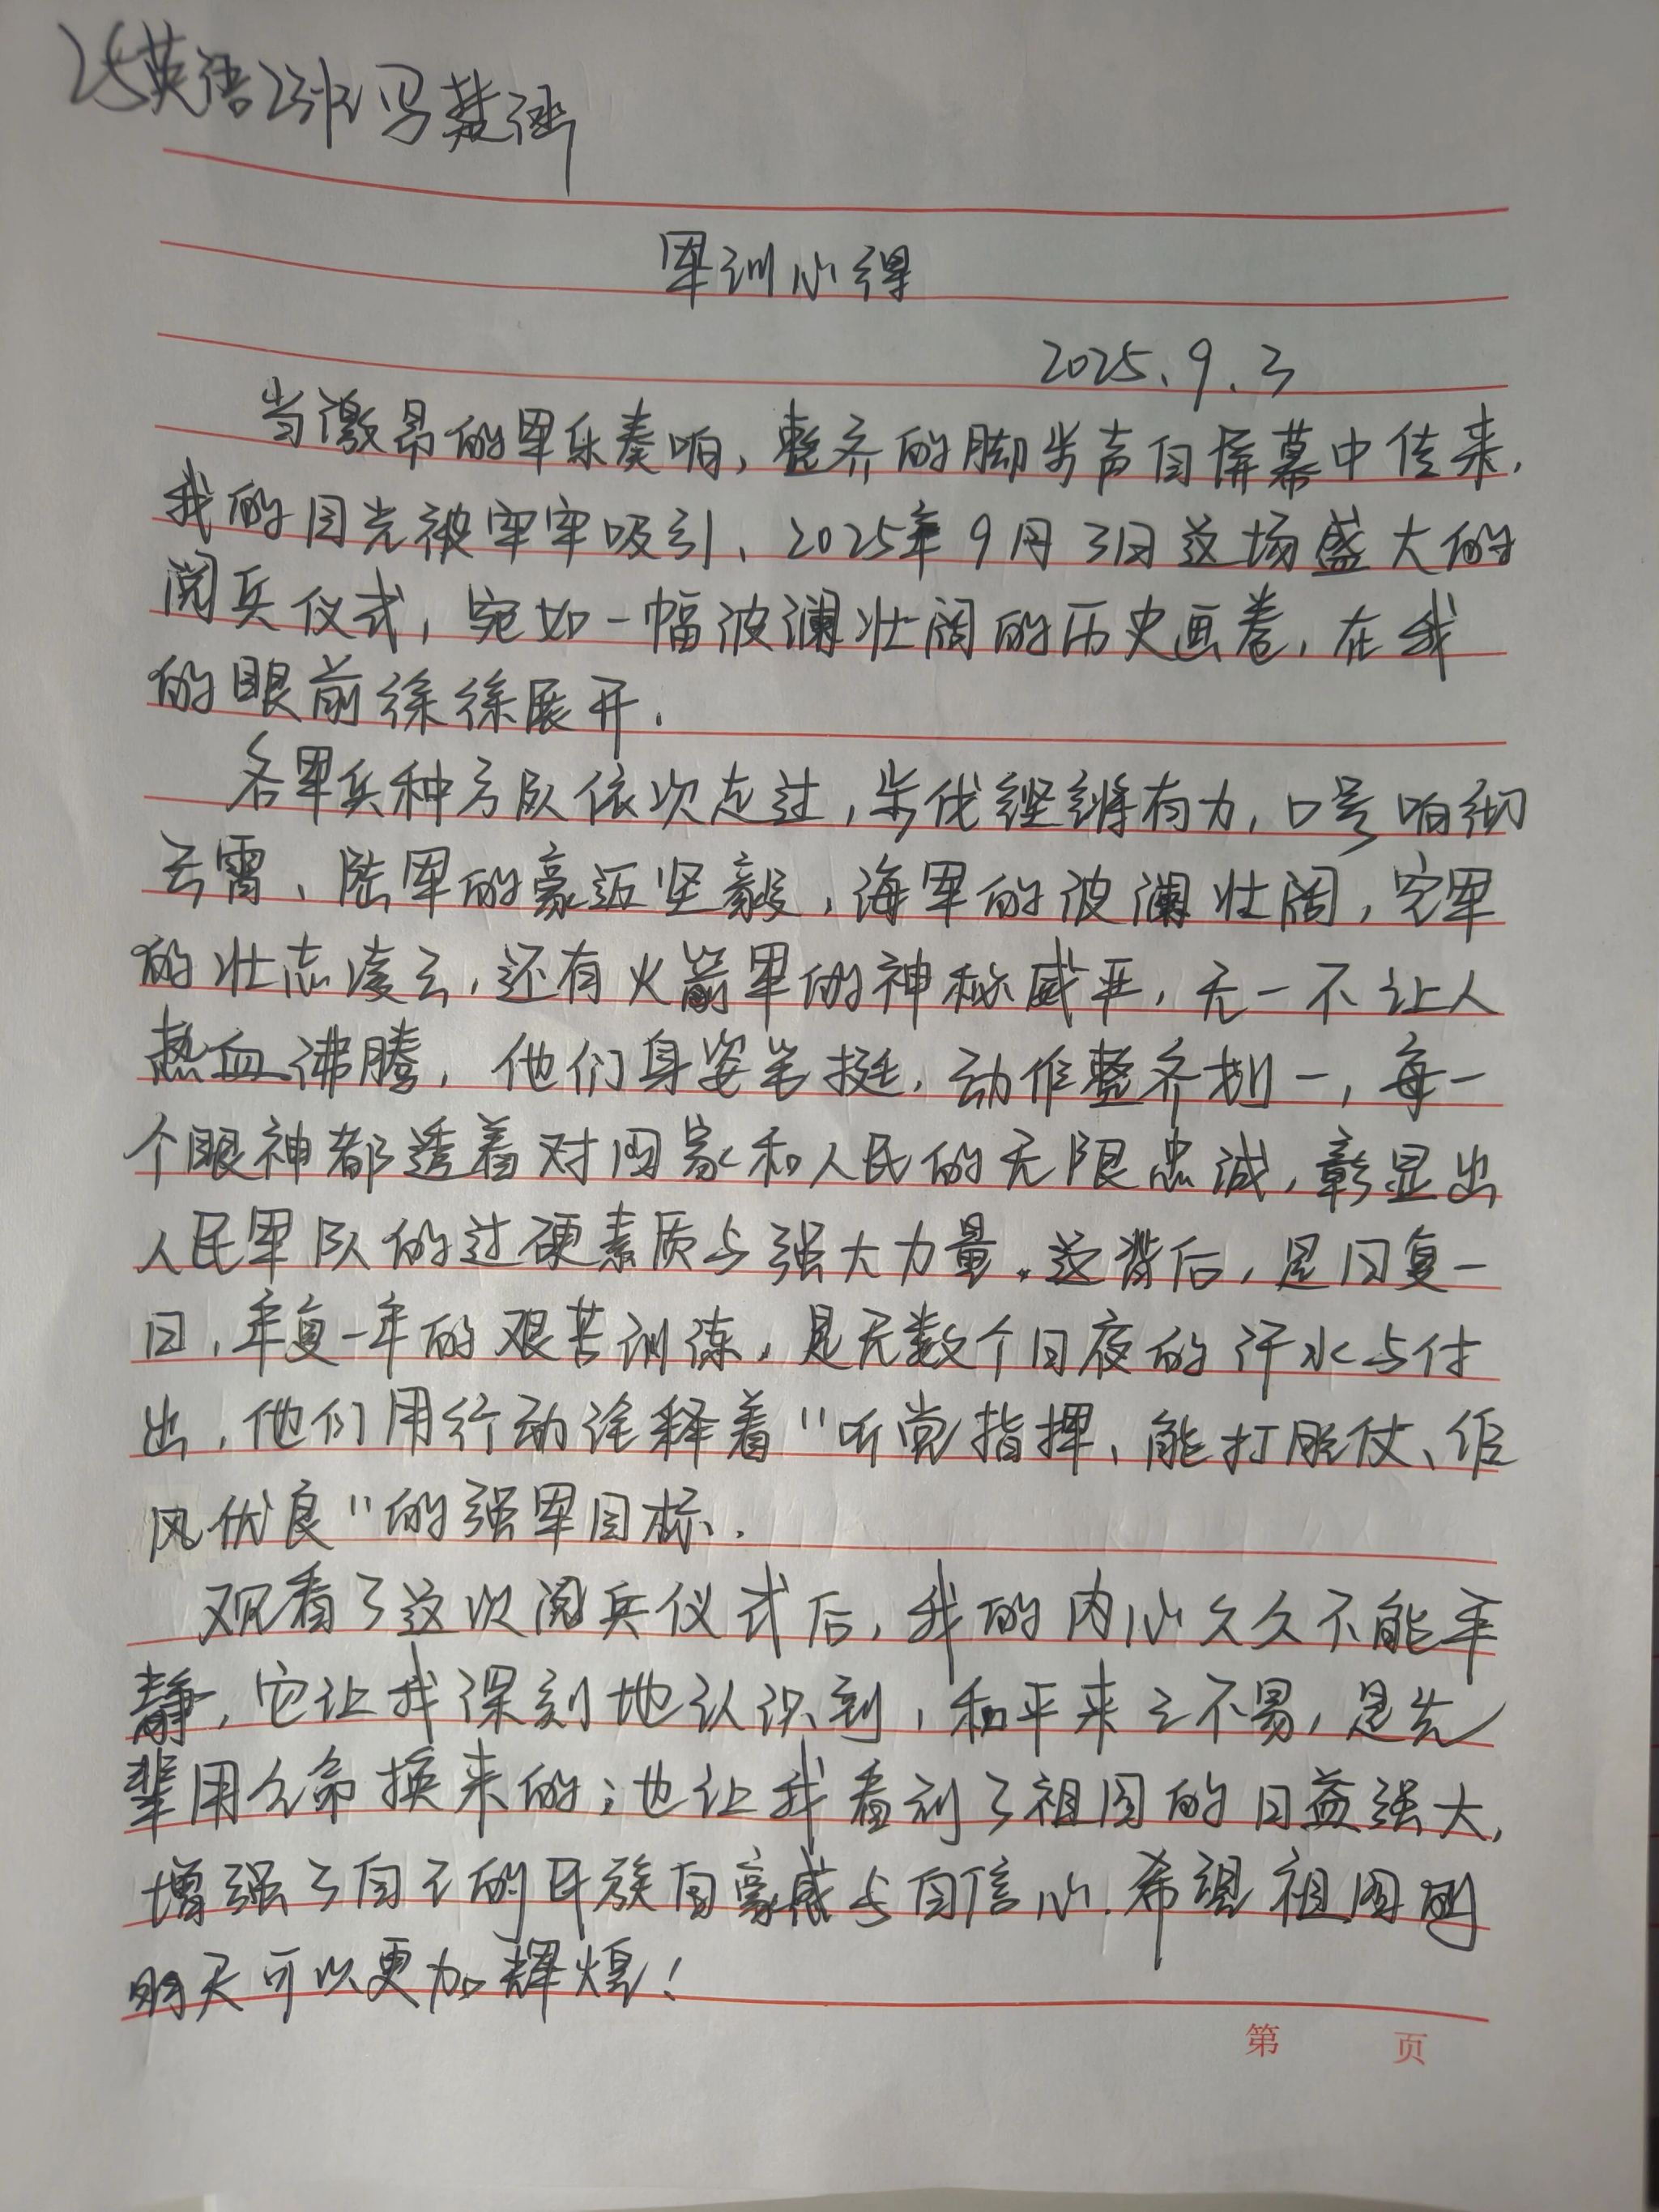 25英语2班冯楚涵
军训心得
2025.9.3
当激昂的军乐奏响,整齐的脚步声自屏幕中传来,
我的目光被牢牢吸引、2025年9月3日这场盛大的
阅兵仪式,宛如一幅波澜壮阔的历史画卷,在我
的眼前徐徐展开.
各军兵种方队依次走过,步伐铿锵有力,口号响彻
云霄、陆军的豪迈坚毅,海军的波澜壮阔,空军
的壮志凌云,还有火箭军的神秘威严,无一不让人
热血沸腾,他们身姿笔挺,动作整齐划一,每一
个眼神都透着对国家和人民的无限忠诚,彰显出
人民军队的过硬素质与强大力量.这背后,是日复一
日,年复一年的艰苦训练,是无数个日夜的汗水与付
出,他们用行动诠释着"听党指挥、能打胜仗、作
风优良"的强军目标.
观看了这次阅兵仪式后,我的内心久久不能平
静,它让我深刻地认识到,和平来之不易,是先
辈用生命换来的;也让我看到了祖国的日益强大,
增强了自己的民族自豪感与自信心.希望祖国的
明天可以更加辉煌!
第 页